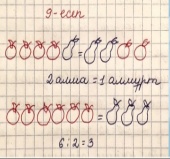 9-есеп
=
2 алма = 1 алмұрт
=
6:2=3